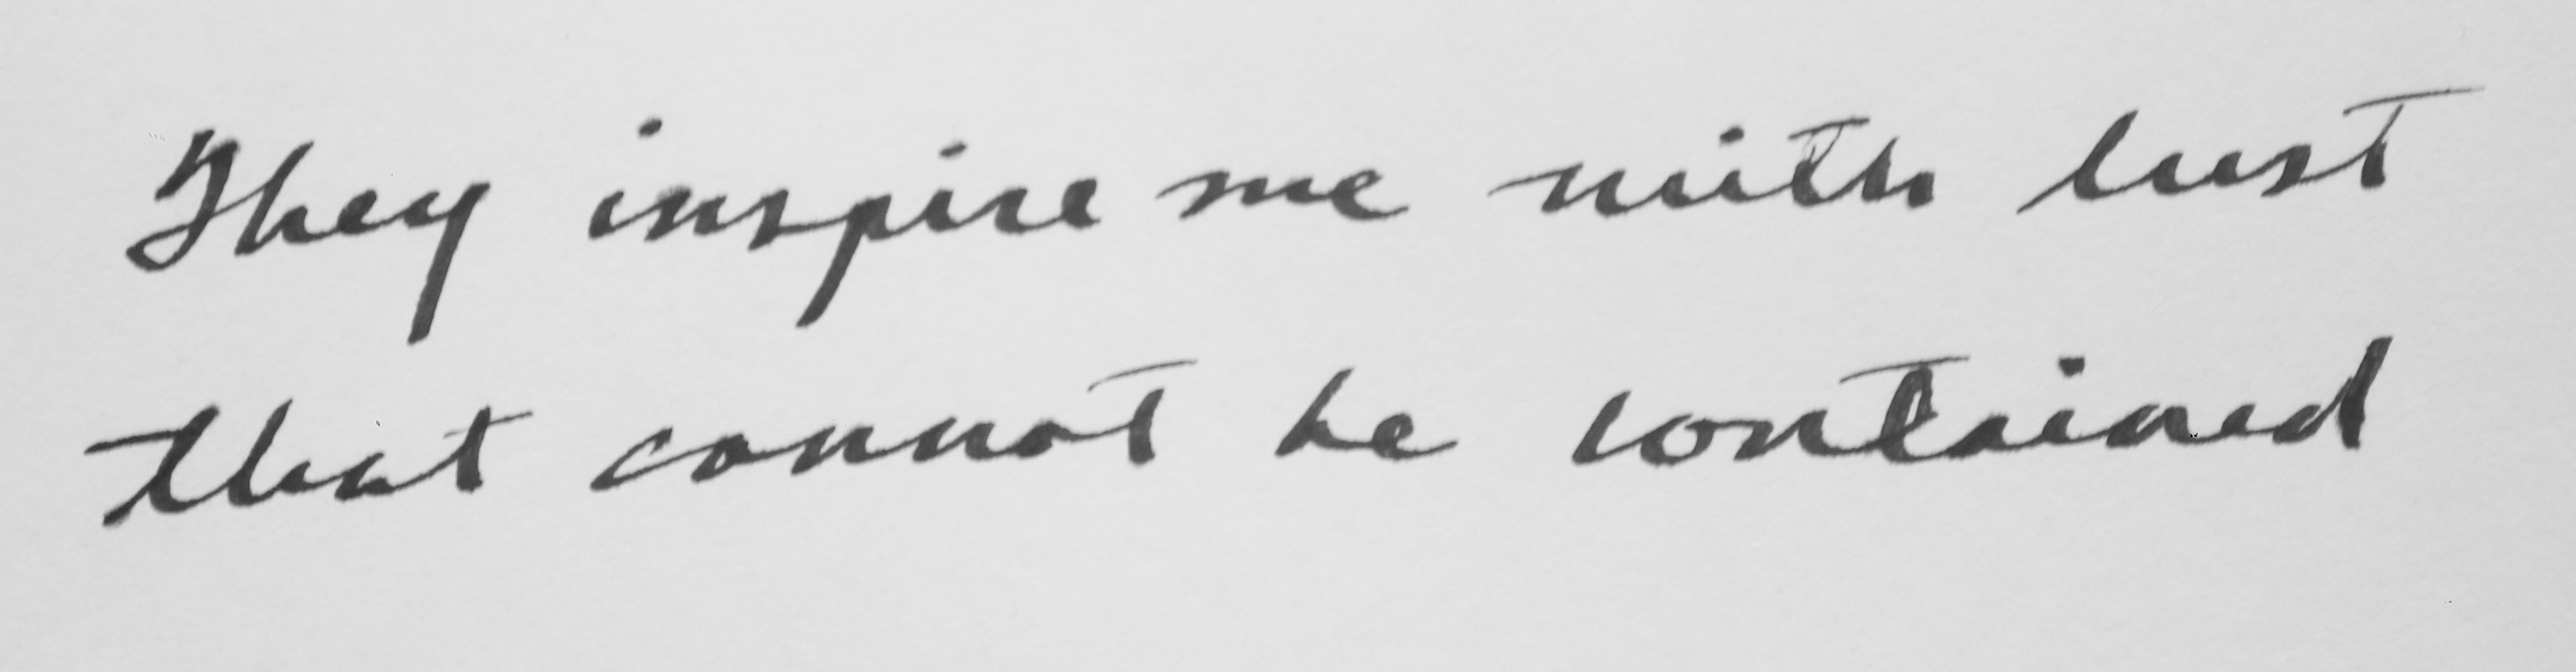 They inspire me with lust
that cannot be contained